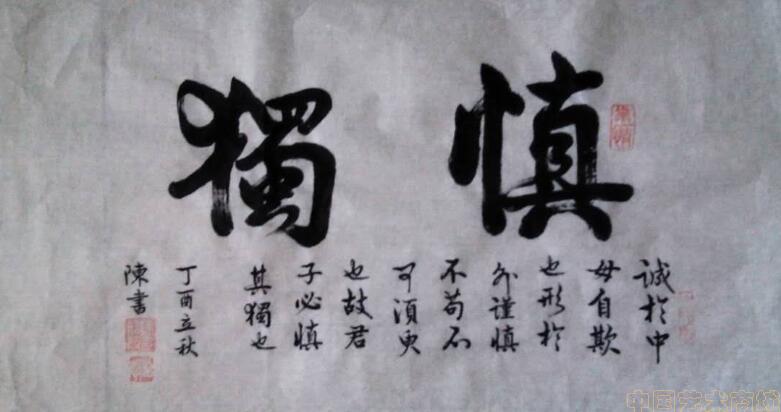 慎獨
誠於中
毋自欺
也形於
外谨慎
不苟不
可須臾
也故君
子必慎
其獨也
丁酉立秋
陳書
中国艺术商